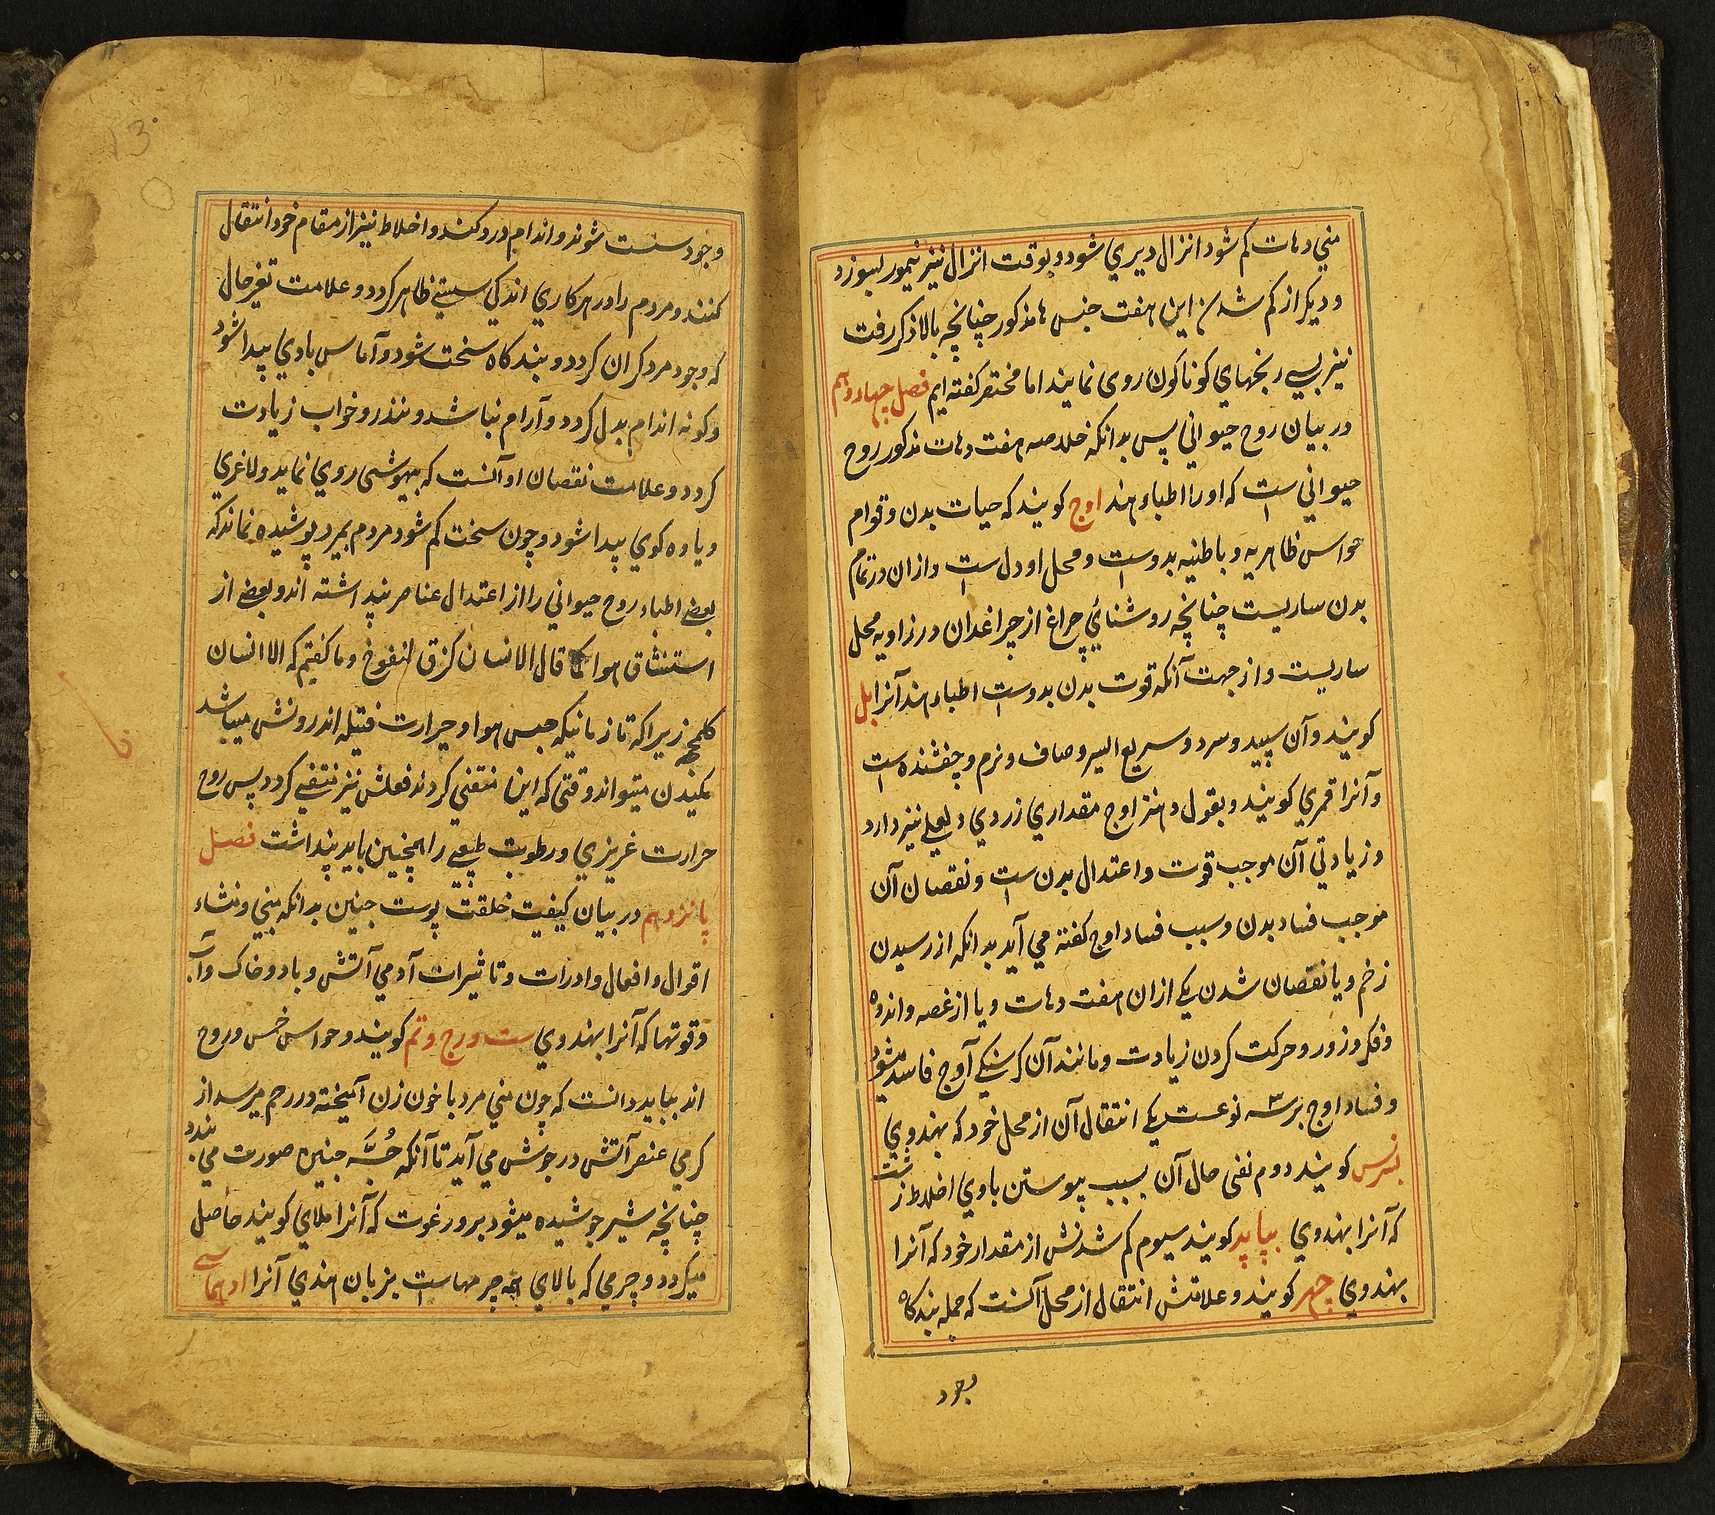 مني دهات كم شود انزال ديري شود و بوقت انزال نيز نيمور بسوزد
و ديكر از كم شدن اين هفت جنس ها مذكور چنانچه بالا ذكر رفت
نيز بسي رنجهاي كوناكون روي نمايند اما مختصر كفته ايم فصل چهاردهم
در بيان روح حيواني پس بدانكه خلاصه هفت دهات مذكور روح
حيواني است كه اورا اطباء هند اوج كويند كه حيات بدن و قوام
حواس ظاهريه و باطنيه بدوست و محل او دل است و ازان در تمام
بدن ساريست چنانچه روشنائي چراغ از چراغدان در زاويه محل
ساريست و از جهت آنكه قوت بدن بدوست اطباء هند آنرا بل
كويند و آن سپيد و سرد و سريع السير و صاف و نرم و چفنده است
و آنرا قمري كويند و بقول دهنتر اوج مقداري زردي و لعلي نيز دارد
و زيادتي آن موجب قوت و اعتدال بدن است و نقصان آن
موجب فساد بدن و سبب فساد اوج كفته مي آيد بدانكه از رسيدن
زخم و يا نقصان شدن يكي ازان هفت دهات و يا از غصه و اندوه
و فكر و زور و حركت كردن زيادت و مانند آن كرسنكي آوج فاسد ميشود
و فساد اوج بر سه نوعست يكي انتقال آن از محل خود كه بهندوي
بنرس كويند دوم نفي حال آن بسبب پيوستن باوي اخلاط زشت
كه آنرا بهندوي بياپد كويند سيوم كم شدنش از مقدار خود كه آنرا
بهندوي چهر كويند و علامتش انتقال از محل آنست كه جمله بندكاه
بوجود
وجود سست شوند و اندام درد كند و اخلاط نيز از مقام خود انتقال
كنند و مردم را در هر كاري اندكي سستي ظاهر كردد و علامت تغير حال
كه وجود مرد كران كردد و بندكاه سخت شود و آماس بادي پيدا شود
و كونه اندام بدل كردد و آرام نباشد و نندر و خواب زيادت
كردد و علامت نقصان او آنست كه بيهوشي روي نمايد و لاغري
و ياوه كوي پيدا شود و چون سخت كم شود مردم بميرد پوشيده نماند كه
بعضي اطباء روح حيواني را از اعتدال عناصر پنداشته اند و بعضي از
استنشاق هوا كما قال الانسان كزق منفوخ و ما كفتيم كه الا انسان
كلمجه زيرا كه تا زمانيكه حبس هوا و حرارت فتيله اندرونش ميباشد
مكيدن ميتواند وقتي كه اين منتفي كردند فعلش نيز منتفي كردد پس روح
حرارت غريزي و رطوبت طبيعي را همچنين بايد پنداشت فصل
پانزدهم در بيان كيفيت خلقت پوست جنين بدانكه بيني و منشاء
اقوال و افعال و ادرات و تاثيرات آدمي آتش و باد و خاك و آب
و قوتها كه آنرا بهندوي ست و رج و تم كويند و حواس خمس و روح
اند ببايد دانست كه چون مني مرد با خون زن آميخته در رحم ميرسد از
كرمي عنصر آتش در جوش مي آيد تا آنكه جُثَّه جنيني صورت مي بندد
چنانچه شير جوشيده ميشود برو رغوت كه آنرا ملاي كويند حاصل
ميكردد و چرمي كه بالاي همه چرمهاست بزبان هندي آنرا اوبهاسي